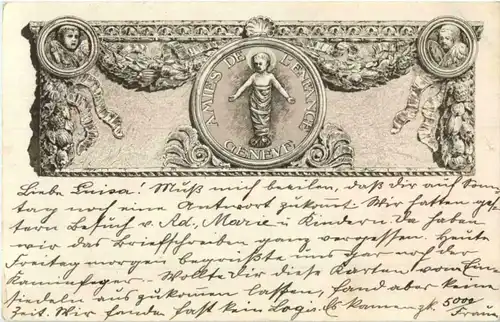 AMIES DE L'ENFANCE
GENÈVE
Liebe Luisa! Muß mich beeilen, daß dir auf Sonn
tag noch eine Antwort zukommt. Wir hatten ges
tern Besuch v. Ad., Marie u Kindern Da haben
wir das Briefschreiben ganz vergessen. Heute
Freitag morgen begrüßte uns gar noch der
Kaminfeger. – Wollte dir diese Karten vom Ein
siedeln aus zukommen lassen, fand aber keine
Zeit. Wir fanden fast kein Logis. Es kamen 5000
Frauen